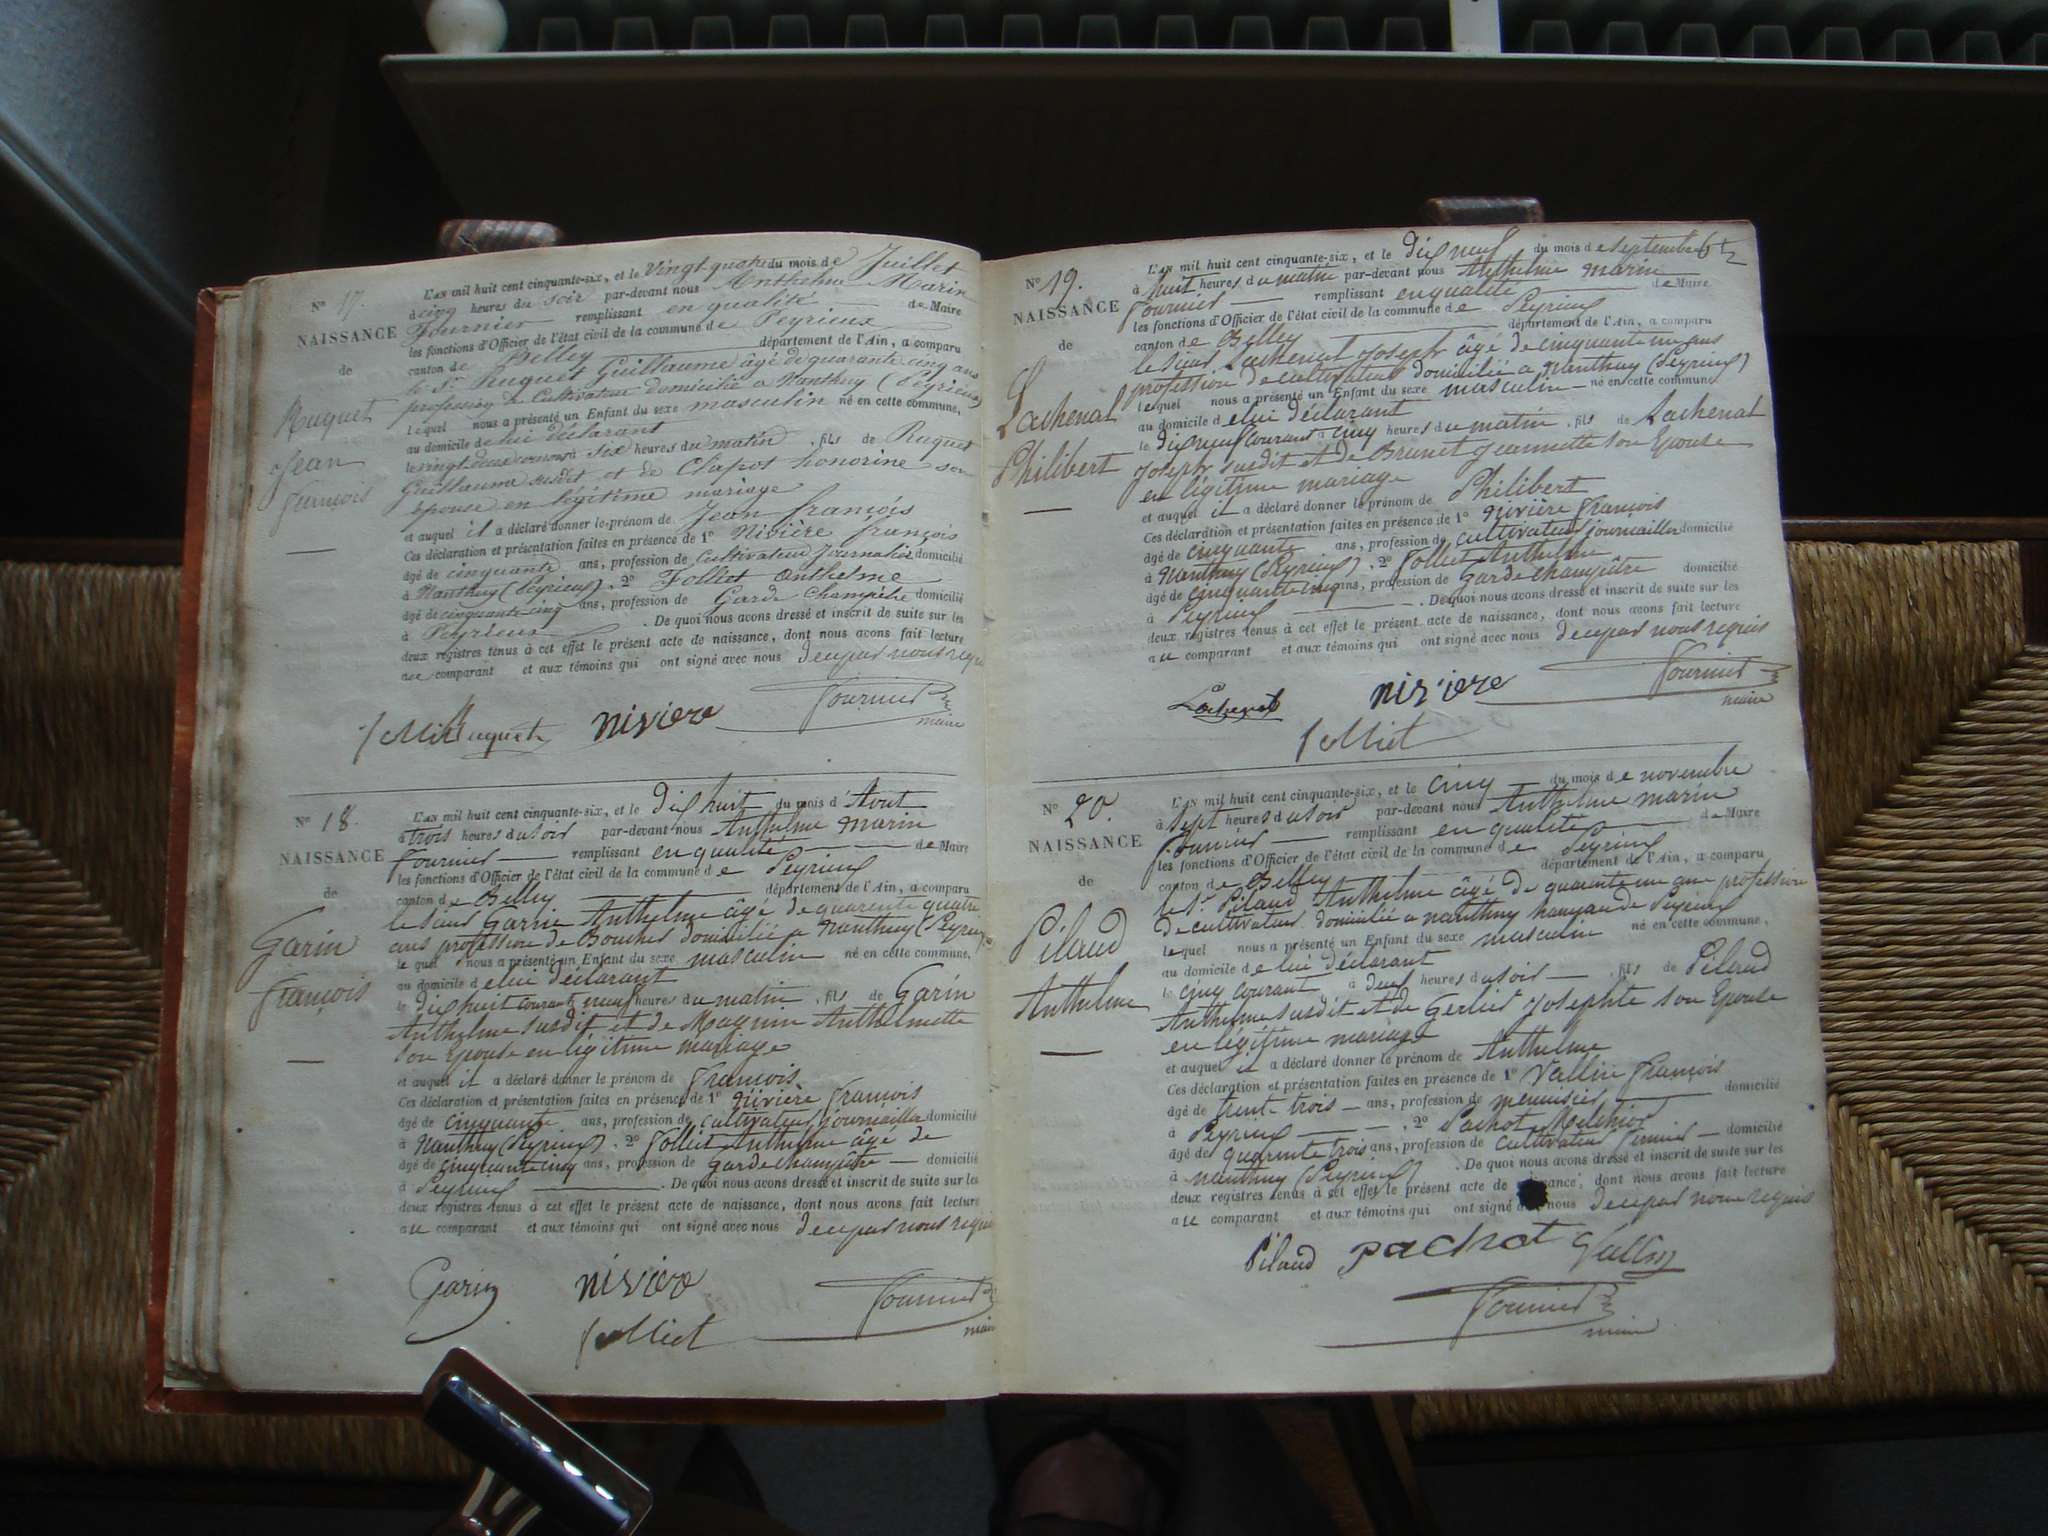 N° 17.
NAISSANCE
de
Ruquet
Jean
françois
L'AN mil huit cent cinquante-six, et le vingt-quatre du mois de Juillet
à cinq heures du soir par-devant nous Anthelme Marin
Fournier remplissant en qualité de Maire
les fonctions d'Officier de l'état civil de la commune de Peyrieux
canton de Belley département de l'Ain, a comparu
le Sr. Ruquet Guillaume âgé de quarante cinq ans
profession de Cultivateur domicilié a Nanthuy (Peyrieux)
lequel nous a présenté un Enfant du sexe masculin né en cette commune,
au domicile de lui déclarant
le vingt deux courant à six heures du matin, fils de Ruquet
Guillaume susdit et de Chapot honorine son
épouse en légitime mariage
et auquel il a déclaré donner le prénom de Jean françois
Ces déclaration et présentation faites en présence de 1° Nivière françois
âgé de cinquante ans, profession de Cultivateur Journalier domicilié
à Nanthuy (Peyrieux), 2° Folliet anthelme
âgé de cinquante-cinq ans, profession de Garde Champêtre domicilié
à Peyrieux. De quoi nous avons dressé et inscrit de suite sur les
deux registres tenus à cet effet le présent acte de naissance, dont nous avons fait lecture
au comparant et aux témoins qui ont signé avec nous de ce par nous requis
folliet Ruquet nivière Fournier
maire
N° 18.
NAISSANCE
de
Garin
françois
L'AN mil huit cent cinquante-six, et le dix huit du mois d'Aout
à trois heures du soir par-devant nous Anthelme marin
fournier remplissant en qualité de Maire
les fonctions d'Officier de l'état civil de la commune de Peyrieux
canton de Belley département de l'Ain, a comparu
le sieur Garin Anthelme âgé de quarente quatre
ans profession de Boucher domicilié a Nanthuy (Peyrieux)
lequel nous a présenté un Enfant du sexe masculin né en cette commune,
au domicile de lui déclarant
le dix huit courant neuf heures du matin, fils de Garin
Anthelme susdit et de Magnin Anthelmette
son Epouse en légitime mariage
et auquel il a déclaré donner le prénom de françois
Ces déclaration et présentation faites en présence de 1° nivière françois
âgé de cinquante ans, profession de cultivateur journaillier domicilié
à Nanthuy (Peyrieux), 2° folliet Anthelme âge de
âgé de cinquante cinq ans, profession de garde champêtre domicilié
à Peyrieux. De quoi nous avons dressé et inscrit de suite sur les
deux registres tenus à cet effet le présent acte de naissance, dont nous avons fait lecture
au comparant et aux témoins qui ont signé avec nous de ce par nous requis
Garin nivière Fournier
folliet maire
6
N° 19.
NAISSANCE
de
Lachenal
Philibert
L'AN mil huit cent cinquante-six, et le dix neuf du mois de septembre
à huit heures du matin par-devant nous Anthelme marin
fournier remplissant en qualité de Maire
les fonctions d'Officier de l'état civil de la commune de Peyrieux
canton de Belley département de l'Ain, a comparu
le sieur Lachenal joseph âgé de cinquante un ans
profession de cultivateur domicilié a Nanthuy (Peyrieux)
lequel nous a présenté un Enfant du sexe masculin né en cette commune
au domicile de lui déclarant
le dix neuf courant à cinq heures du matin, fils de Lachenal
joseph susdit et de Brunet jeannette son Epouse
en légitime mariage
et auquel il a déclaré donner le prénom de Philibert
Ces déclaration et présentation faites en présence de 1° nivière françois
âgé de cinquante ans, profession de cultivateur journaillier domicilié
à Nanthuy (Peyrieux), 2° folliet Anthelme
âgé de cinquante cinq ans, profession de Garde champêtre domicilié
à Peyrieux. De quoi nous avons dressé et inscrit de suite sur les
deux registres tenus à cet effet le présent acte de naissance, dont nous avons fait lecture
au comparant et aux témoins qui ont signé avec nous de ce par nous requis
Lachenal nivière Fournier
folliet maire
N° 20.
NAISSANCE
de
Pilaud
Anthelme
L'AN mil huit cent cinquante-six, et le cinq du mois de novembre
à sept heures du soir par-devant nous Anthelme marin
fournier remplissant en qualité de Maire
les fonctions d'Officier de l'état civil de la commune de Peyrieux
canton de Belley département de l'Ain, a comparu
le Sr. Pilaud Anthelme âgé de quarente un ans profession
de cultivateur domicilié a nanthuy hameau de Peyrieux
lequel nous a présenté un Enfant du sexe masculin né en cette commune,
au domicile de lui déclarant
le cinq courant à deux heures du soir, fils de Pilaud
Anthelme susdit et de Gerlier josephte son Epouse
en légitime mariage
et auquel il a déclaré donner le prénom de Anthelme
Ces déclaration et présentation faites en présence de 1° Vallin françois
âgé de trente-trois ans, profession de menuisier domicilié
à Peyrieux, 2° Pachot Melchior
âgé de quarente trois ans, profession de cultivateur fermier domicilié
à nanthuy (Peyrieux). De quoi nous avons dressé et inscrit de suite sur les
deux registres tenus à cet effet le présent acte de naissance, dont nous avons fait lecture
au comparant et aux témoins qui ont signé avec nous de ce par nous requis
Pilaud pachot Vallin
Fournier
maire